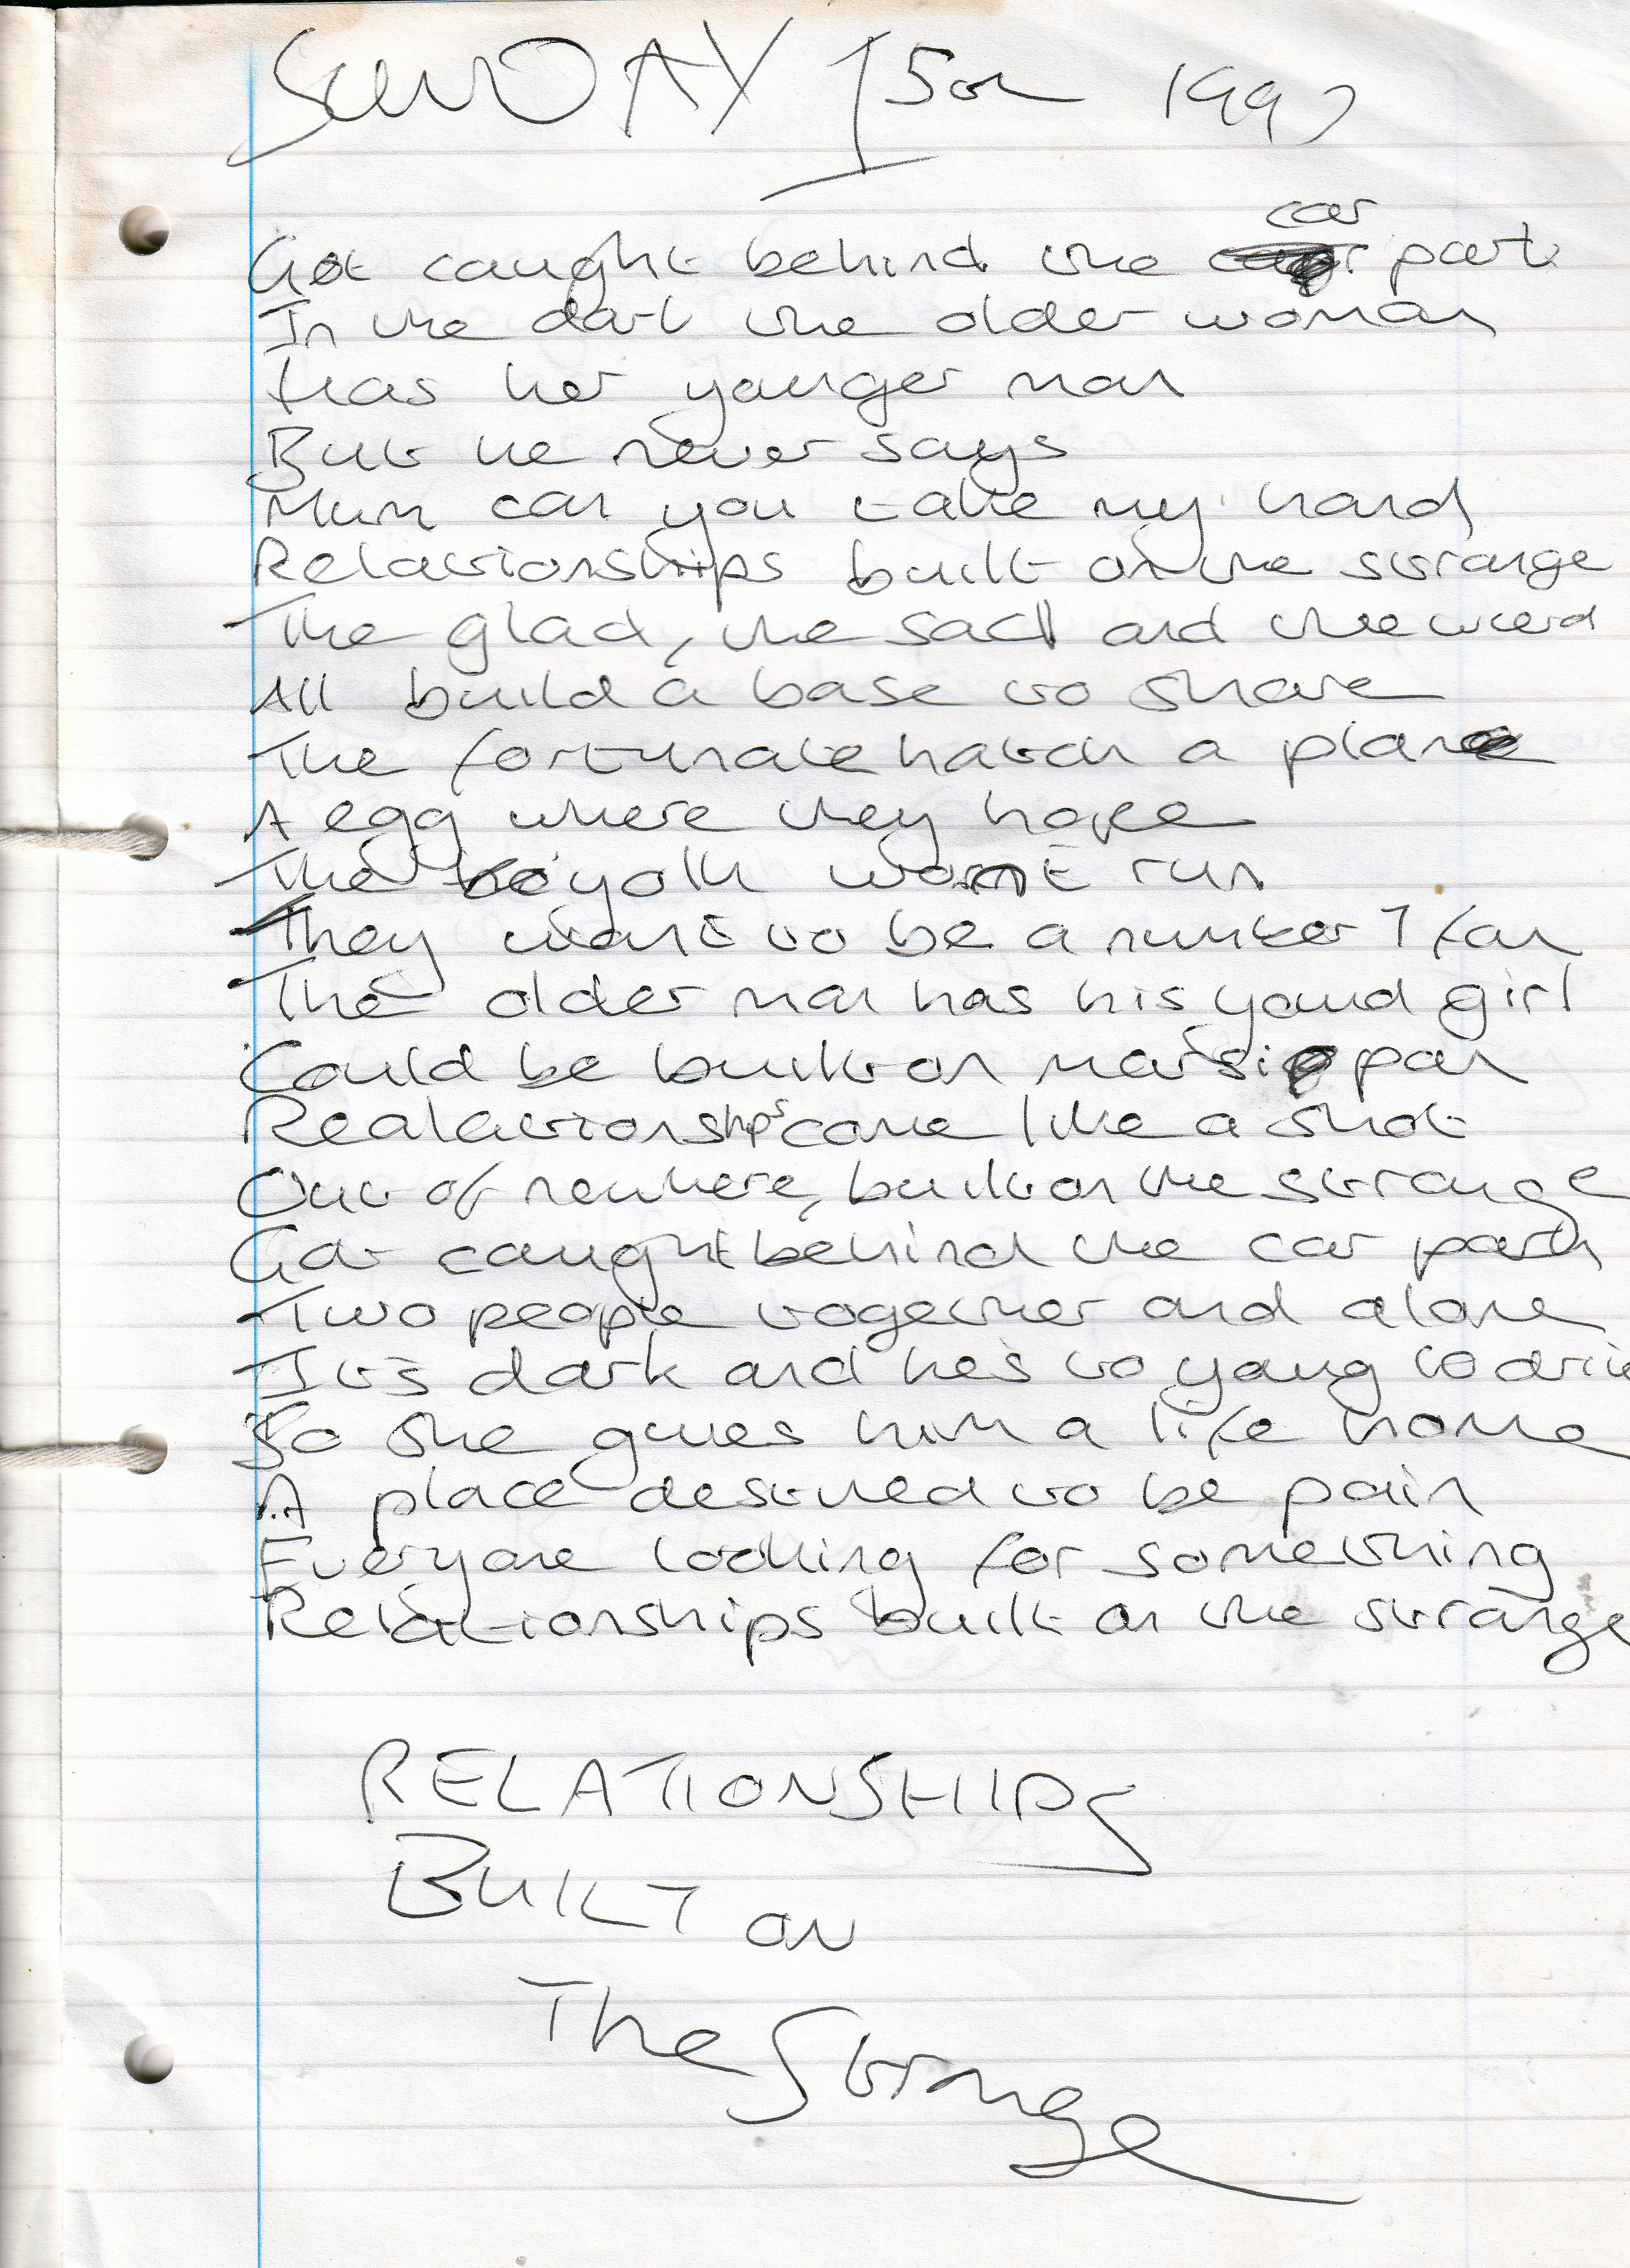 SUNDAY 15th 1997
car
Got caught behind the park
In the dark the older woman
Has her younger man
But he never says
Mum can you take my hand
Relationships built on the strange
The glad, the sad and the wierd
All build a base to share
The fortunate hatch a plan
A egg where they hope
The yolk won't run
They want to be a number 1 fan
The older man has his yound girl
Could be built on marsipan
Realationships come like a shot
Out of nowhere, built on the strange
Got caught behind the car park
Two people together and alone
It's dark and he's to young to drive
So she gives him a life home
A place destined to be pain
Everyone looking for something
Relationships built on the strange
RELATIONSHIPS
BUILT ON
The Strange